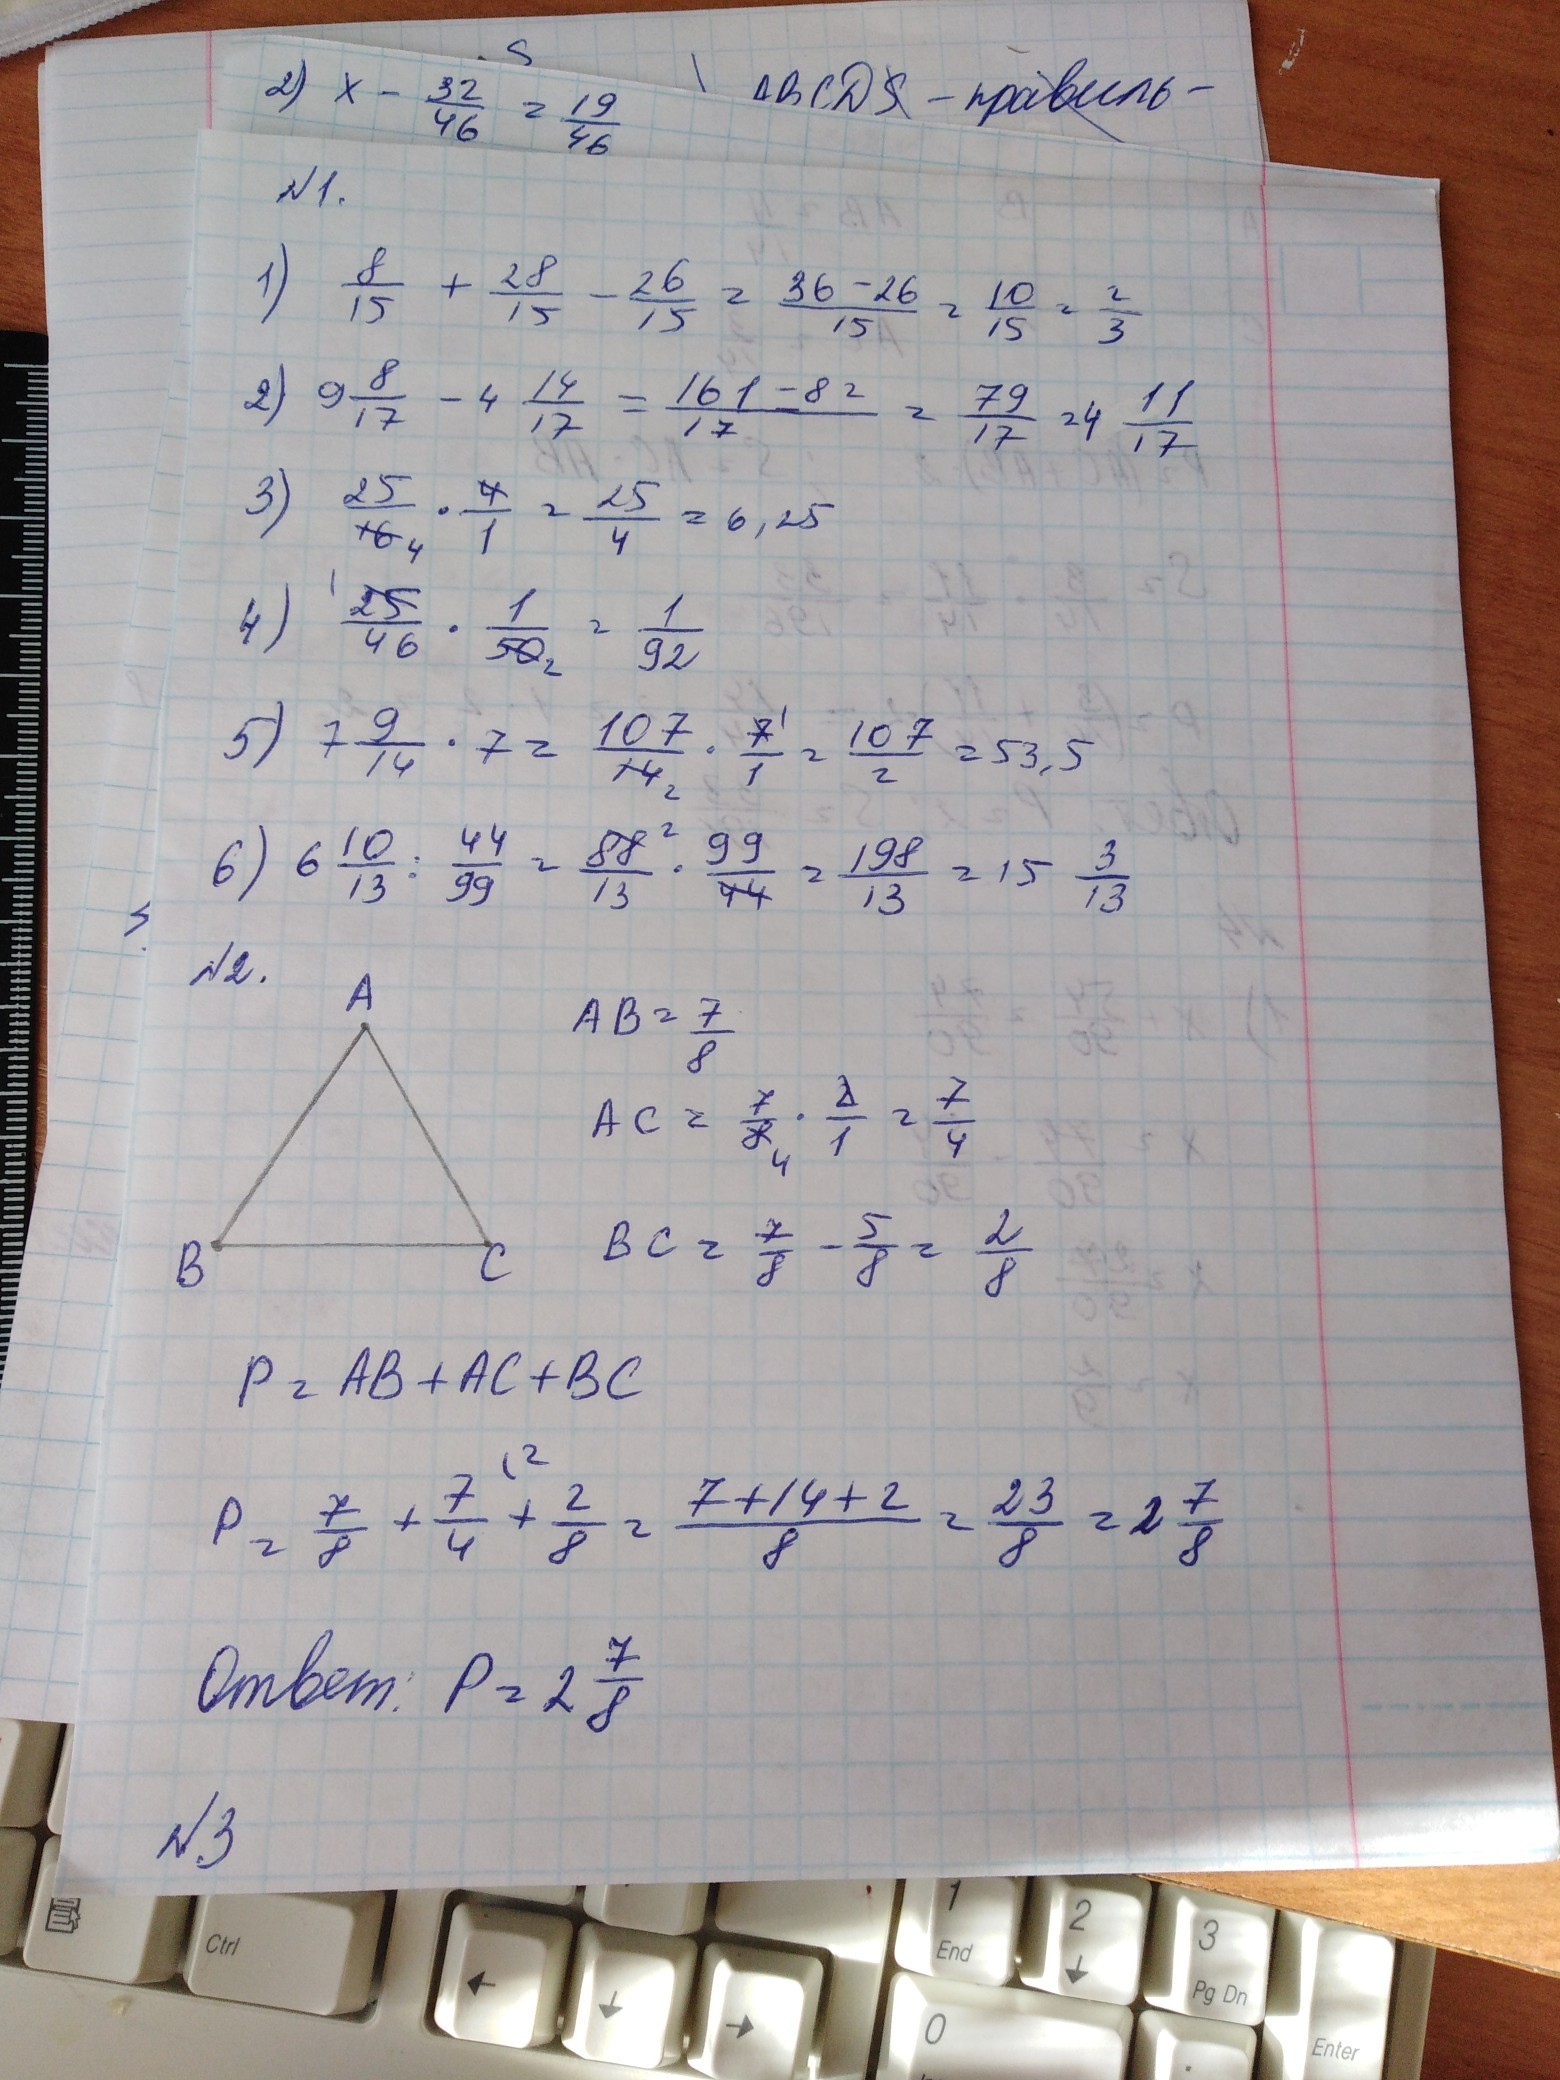 2) x - 32/46 = 19/46
ABCDS - правиль-
N1.
1) 8/15 + 28/15 - 26/15 = 36-26/15 = 10/15 = 2/3
2) 9 8/17 - 4 14/17 = 161-82/17 = 79/17 = 4 11/17
3) 25/16 4 · 4/1 = 25/4 = 6,25
4) 1 25/46 · 1/50 2 = 1/92
5) 7 9/14 · 7 = 107/14 2 · 7 1/1 = 107/2 = 53,5
6) 6 10/13 : 44/99 = 88 2/13 · 99/44 = 198/13 = 15 3/13
N2.
A
B
C
AB = 7/8
AC = 7/8 4 · 2/1 = 7/4
BC = 7/8 - 5/8 = 2/8
P = AB + AC + BC
P = 7/8 + 7/4 (2 + 2/8 = 7+14+2/8 = 23/8 = 2 7/8
Ответ: P = 2 7/8
N.3
Ctrl
←
↓
→
1 End
2 ↓
3 Pg Dn
0
.
Enter